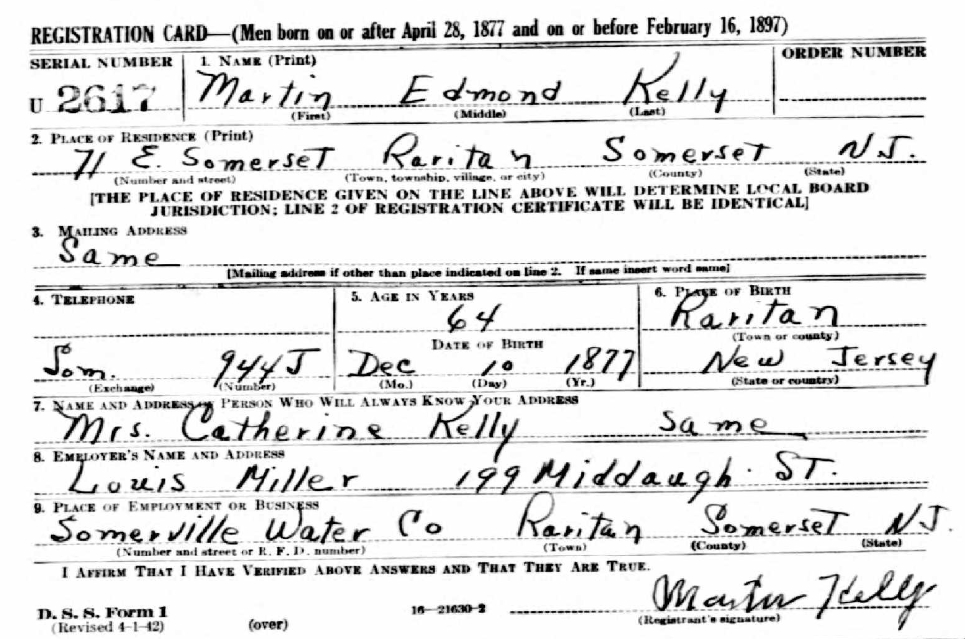 REGISTRATION CARD—(Men born on or after April 28, 1877 and on or before February 16, 1897)
SERIAL NUMBER 1. NAME (Print) ORDER NUMBER
U 2617 Martin Edmond Kelly
(First) (Middle) (Last)
2. PLACE OF RESIDENCE (Print)
71 E. Somerset Raritan Somerset N.J.
(Number and street) (Town, township, village, or city) (County) (State)
[THE PLACE OF RESIDENCE GIVEN ON THE LINE ABOVE WILL DETERMINE LOCAL BOARD
JURISDICTION; LINE 2 OF REGISTRATION CERTIFICATE WILL BE IDENTICAL]
3. MAILING ADDRESS
Same
[Mailing address if other than place indicated on line 2. If same insert word same]
4. TELEPHONE 5. AGE IN YEARS 6. PLACE OF BIRTH
64 Raritan
DATE OF BIRTH (Town or county)
Som. 944J Dec 10 1877 New Jersey
(Exchange) (Number) (Mo.) (Day) (Yr.) (State or country)
7. NAME AND ADDRESS OF PERSON WHO WILL ALWAYS KNOW YOUR ADDRESS
Mrs. Catherine Kelly Same
8. EMPLOYER'S NAME AND ADDRESS
Louis Miller 199 Middaugh ST.
9. PLACE OF EMPLOYMENT OR BUSINESS
Somerville Water Co Raritan Somerset N.J.
(Number and street or R. F. D. number) (Town) (County) (State)
I AFFIRM THAT I HAVE VERIFIED ABOVE ANSWERS AND THAT THEY ARE TRUE.
Martin Kelly
D. S. S. Form 1 16—21630-2 (Registrant's signature)
(Revised 4-1-42) (over)